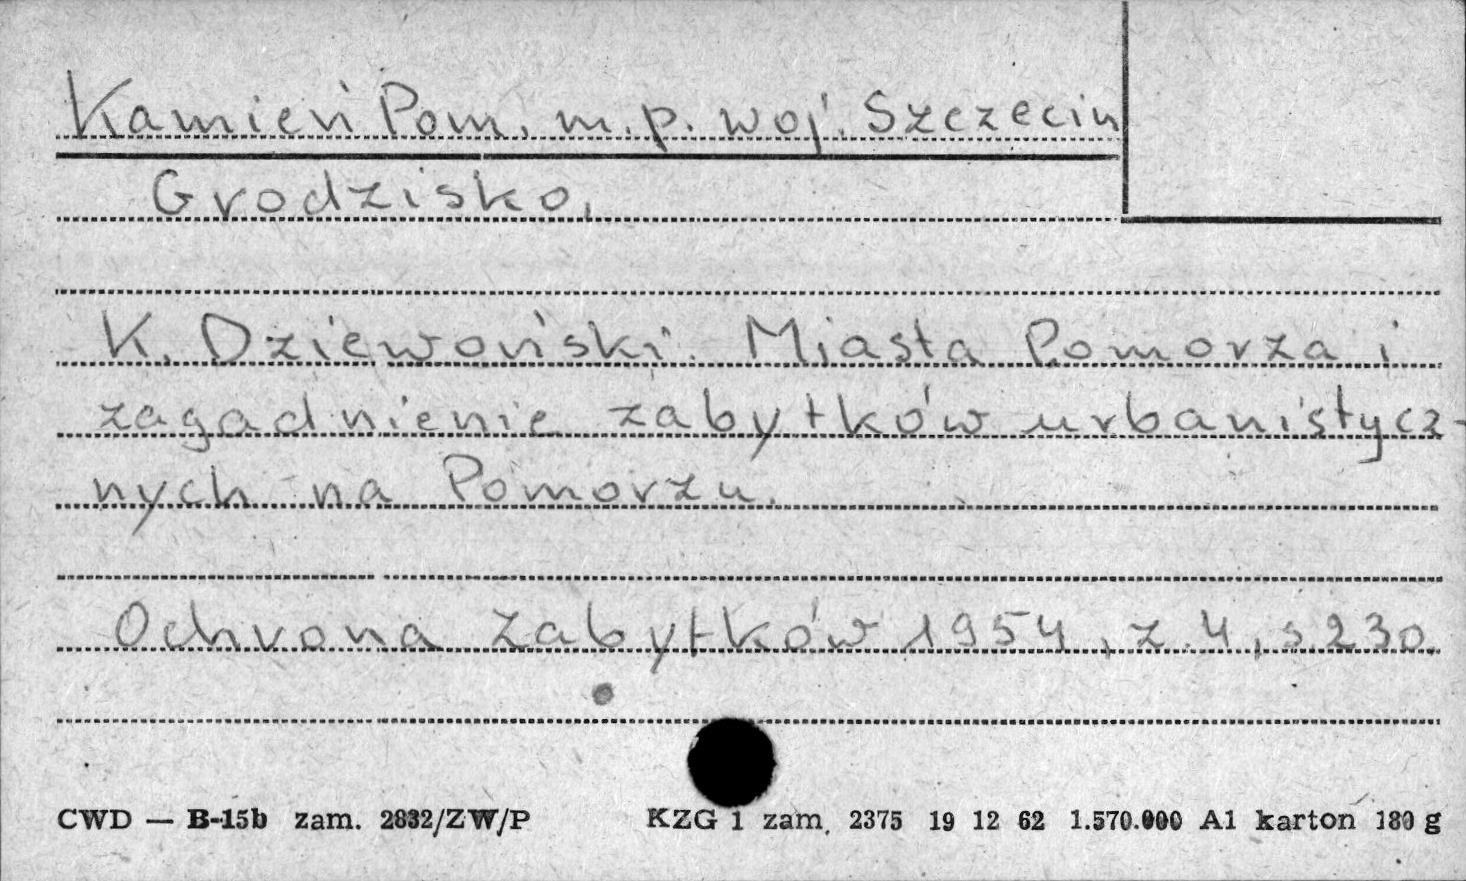 Kamień Pom. m.p. woj. Szczecin
Grodzisko.
K. Dziewoński. Miasta Pomorza i
zagadnienie zabytków urbanistycz-
nych na Pomorzu.
Ochrona Zabytków 1954, z. 4, s. 230.
CWD — B-15b zam. 2832/ZW/P KZG 1 zam. 2375 19 12 62 1.570.000 A1 karton 180 g